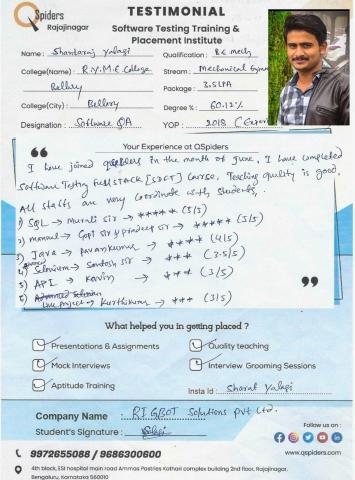 QSpiders
Rajajinagar
TESTIMONIAL
Software Testing Training &
Placement Institute
Name : Shantaraj Yalagi Qualification : B.E mech
College(Name) : R.Y.M.E College Stream : Mechanical
Bellary Package : 3.5LPA
College(City) : Bellary Degree % : 60.12%
Designation : Software QA YOP : 2018
Your Experience at QSpiders
I have joined qspiders in the month of June, I have completed
Software Testing FullSTACK [SDET] Course, Teaching quality is good.
All staffs are very coordinate with students,
1) SQL → Murali sir → ***** (5/5)
2) manual → Gopi sir & pradeep sir → ***** (5/5)
3) JAVA → pavankumar → **** (4/5)
4) Selenium → Santosh sir → *** (3.5/5)
5) API → Kavin → *** (3/5)
Live project → Kirthikumar → *** (3/5)
What helped you in getting placed ?
Presentations & Assignments Quality teaching
Mock Interviews Interview Grooming Sessions
Aptitude Training
Insta Id : Sharat Yalagi
Company Name : RIGBOT Solutions Pvt Ltd.
Student's Signature :
Follow us on :
9972655088 / 9686300600
www.qspiders.com
4th block, ESI hospital main road Ammas Pastries Kothari complex building 2nd floor, Rajajinagar,
Bengaluru, Karnataka 560010